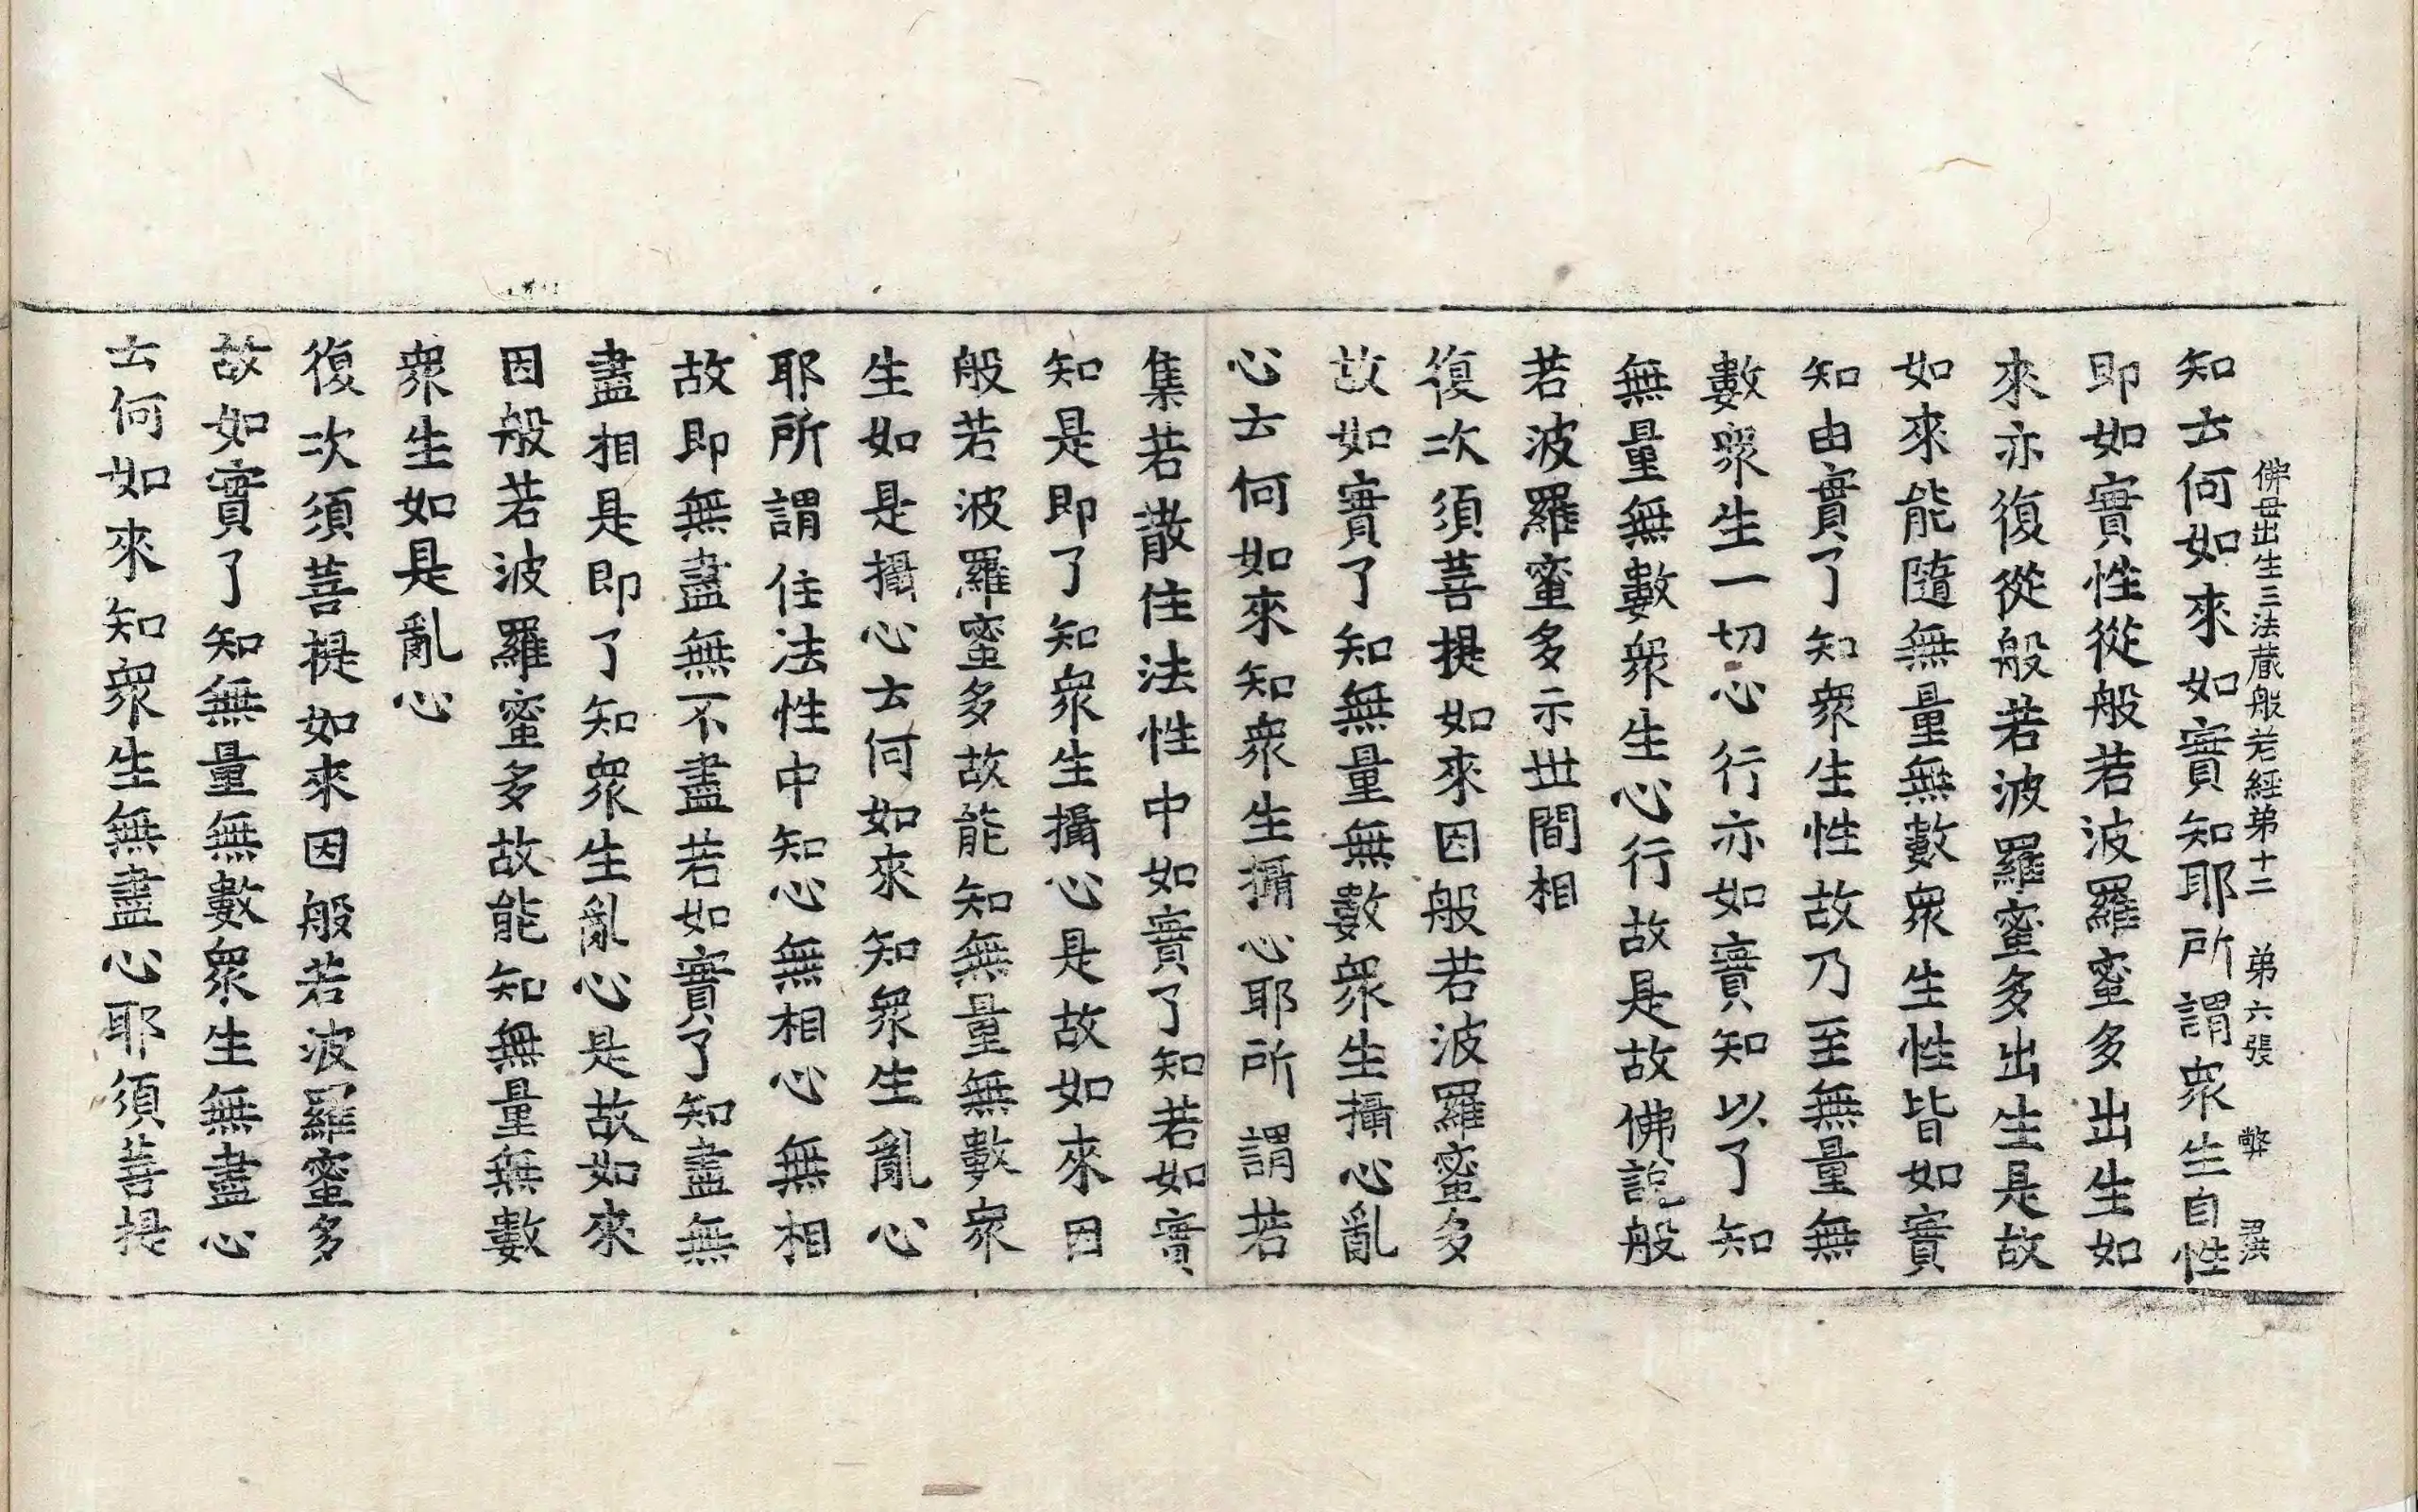 佛母出生三法蔵般若經第十二 第六張 弊
知云何如來如實知耶所謂衆生自性
即如實性從般若波羅蜜多出生如
來亦復從般若波羅蜜多出生是故
如來能隨無量無數衆生性皆如實
知由實了知衆生性故乃至無量無
數衆生一切心行亦如實知以了知
無量無數衆生心行故是故佛說般
若波羅蜜多示世間相
復次須菩提如來因般若波羅蜜多
故如實了知無量無數衆生攝心亂
心云何如來知衆生攝心耶所謂若
集若散住法性中如實了知若如實
知是即了知衆生攝心是故如來因
般若波羅蜜多故能知無量無數衆
生如是攝心云何如來知衆生亂心
耶所謂住法性中知心無相心無相
故即無盡無不盡若如實了知盡無
盡相是即了知衆生亂心是故如來
因般若波羅蜜多故能知無量無數
衆生如是亂心
復次須菩提如來因般若波羅蜜多
故如實了知無量無數衆生無盡心
云何如來知衆生無盡心耶須菩提